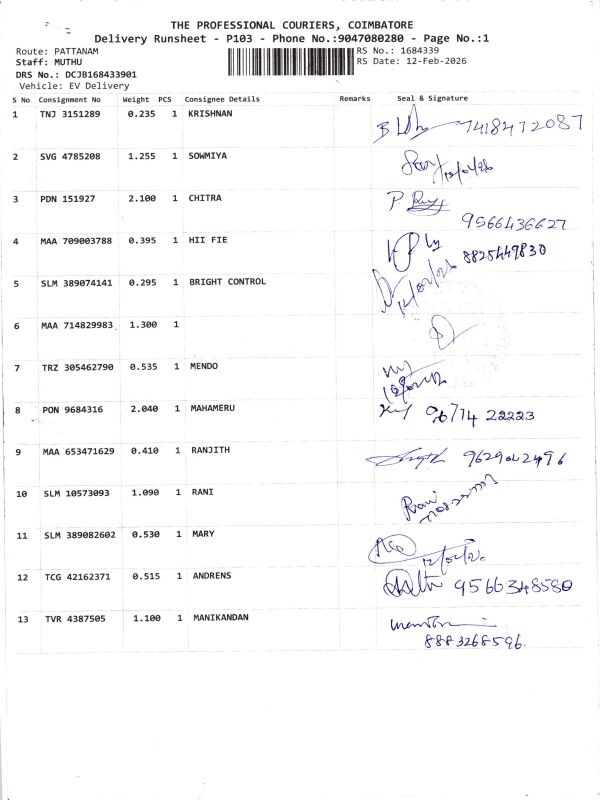 THE PROFESSIONAL COURIERS, COIMBATORE
Delivery Runsheet - P103 - Phone No.:9047080280 - Page No.:1
Route: PATTANAM RS No.: 1684339
Staff: MUTHU RS Date: 12-Feb-2026
DRS No.: DCJB168433901
Vehicle: EV Delivery
S No Consignment No Weight PCS Consignee Details Remarks Seal & Signature
1 TNJ 3151289 0.235 1 KRISHNAN 7418472087
2 SVG 4785208 1.255 1 SOWMIYA
3 PDN 151927 2.100 1 CHITRA P.
9566436627
4 MAA 709003788 0.395 1 HII FIE 8825449830
5 SLM 389074141 0.295 1 BRIGHT CONTROL 12/02/26
6 MAA 714829983 1.300 1
7 TRZ 305462790 0.535 1 MENDO
8 PON 9684316 2.040 1 MAHAMERU 96714 22223
9 MAA 653471629 0.410 1 RANJITH
10 SLM 10573093 1.090 1 RANI Rani
11 SLM 389082602 0.530 1 MARY
12 TCG 42162371 0.515 1 ANDRENS 9566348580
13 TVR 4387505 1.100 1 MANIKANDAN
8883268596.